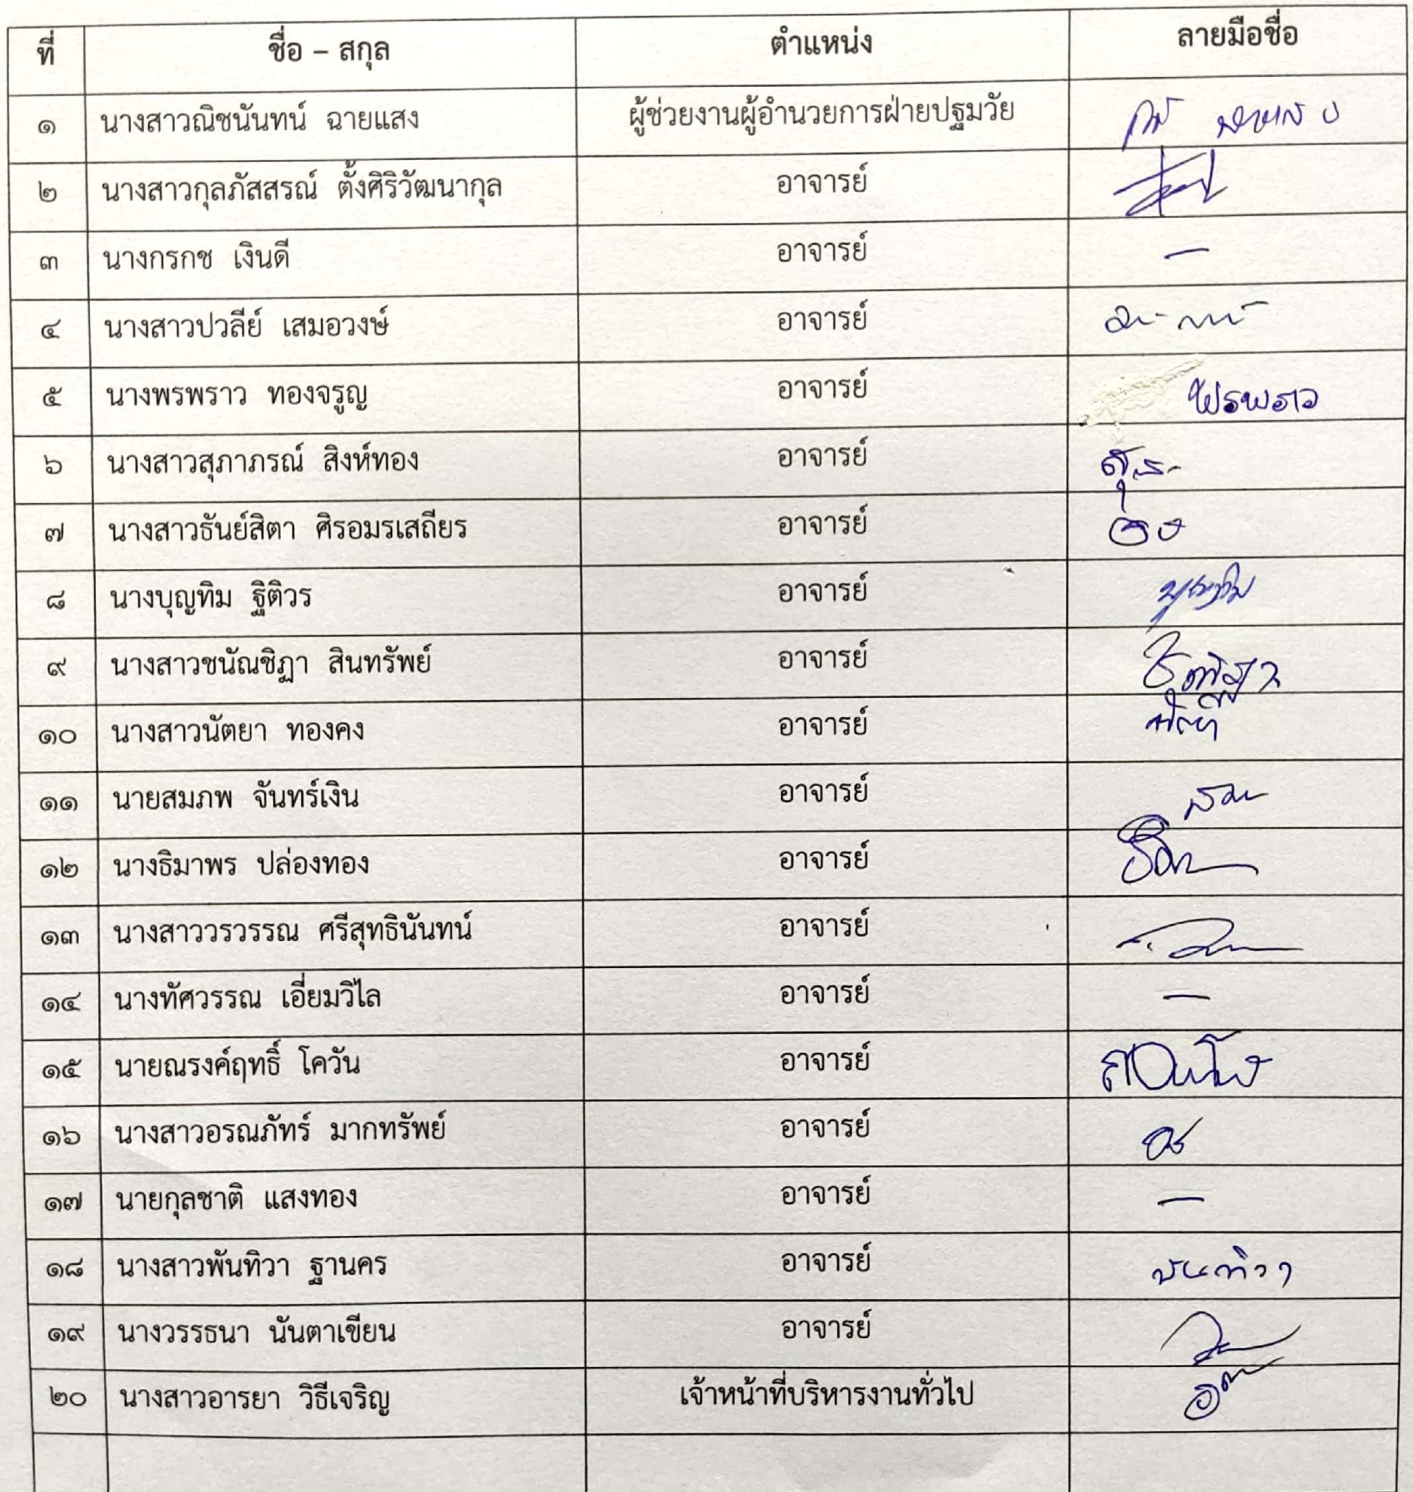 ที่ ชื่อ – สกุล ตำแหน่ง ลายมือชื่อ
๑ นางสาวณิชนันทน์ ฉายแสง ผู้ช่วยงานผู้อำนวยการฝ่ายปฐมวัย
๒ นางสาวกุลภัสสรณ์ ตั้งศิริวัฒนากุล อาจารย์
๓ นางกรกช เงินดี อาจารย์ —
๔ นางสาวปวลีย์ เสมอวงษ์ อาจารย์
๕ นางพรพราว ทองจรูญ อาจารย์ พรพราว
๖ นางสาวสุภาภรณ์ สิงห์ทอง อาจารย์
๗ นางสาวธันย์สิตา ศิรอมรเสถียร อาจารย์
๘ นางบุญทิม ฐิติวร อาจารย์ บุญทิม
๙ นางสาวชนัณชิฏา สินทรัพย์ อาจารย์
๑๐ นางสาวนัตยา ทองคง อาจารย์
๑๑ นายสมภพ จันทร์เงิน อาจารย์
๑๒ นางธิมาพร ปล่องทอง อาจารย์
๑๓ นางสาววรวรรณ ศรีสุทธินันทน์ อาจารย์
๑๔ นางทัศวรรณ เอี่ยมวิไล อาจารย์ —
๑๕ นายณรงค์ฤทธิ์ โควัน อาจารย์
๑๖ นางสาวอรณภัทร์ มากทรัพย์ อาจารย์
๑๗ นายกุลชาติ แสงทอง อาจารย์ —
๑๘ นางสาวพันทิวา ฐานคร อาจารย์ พันทิวา
๑๙ นางวรรธนา นันตาเขียน อาจารย์
๒๐ นางสาวอารยา วิธีเจริญ เจ้าหน้าที่บริหารงานทั่วไป